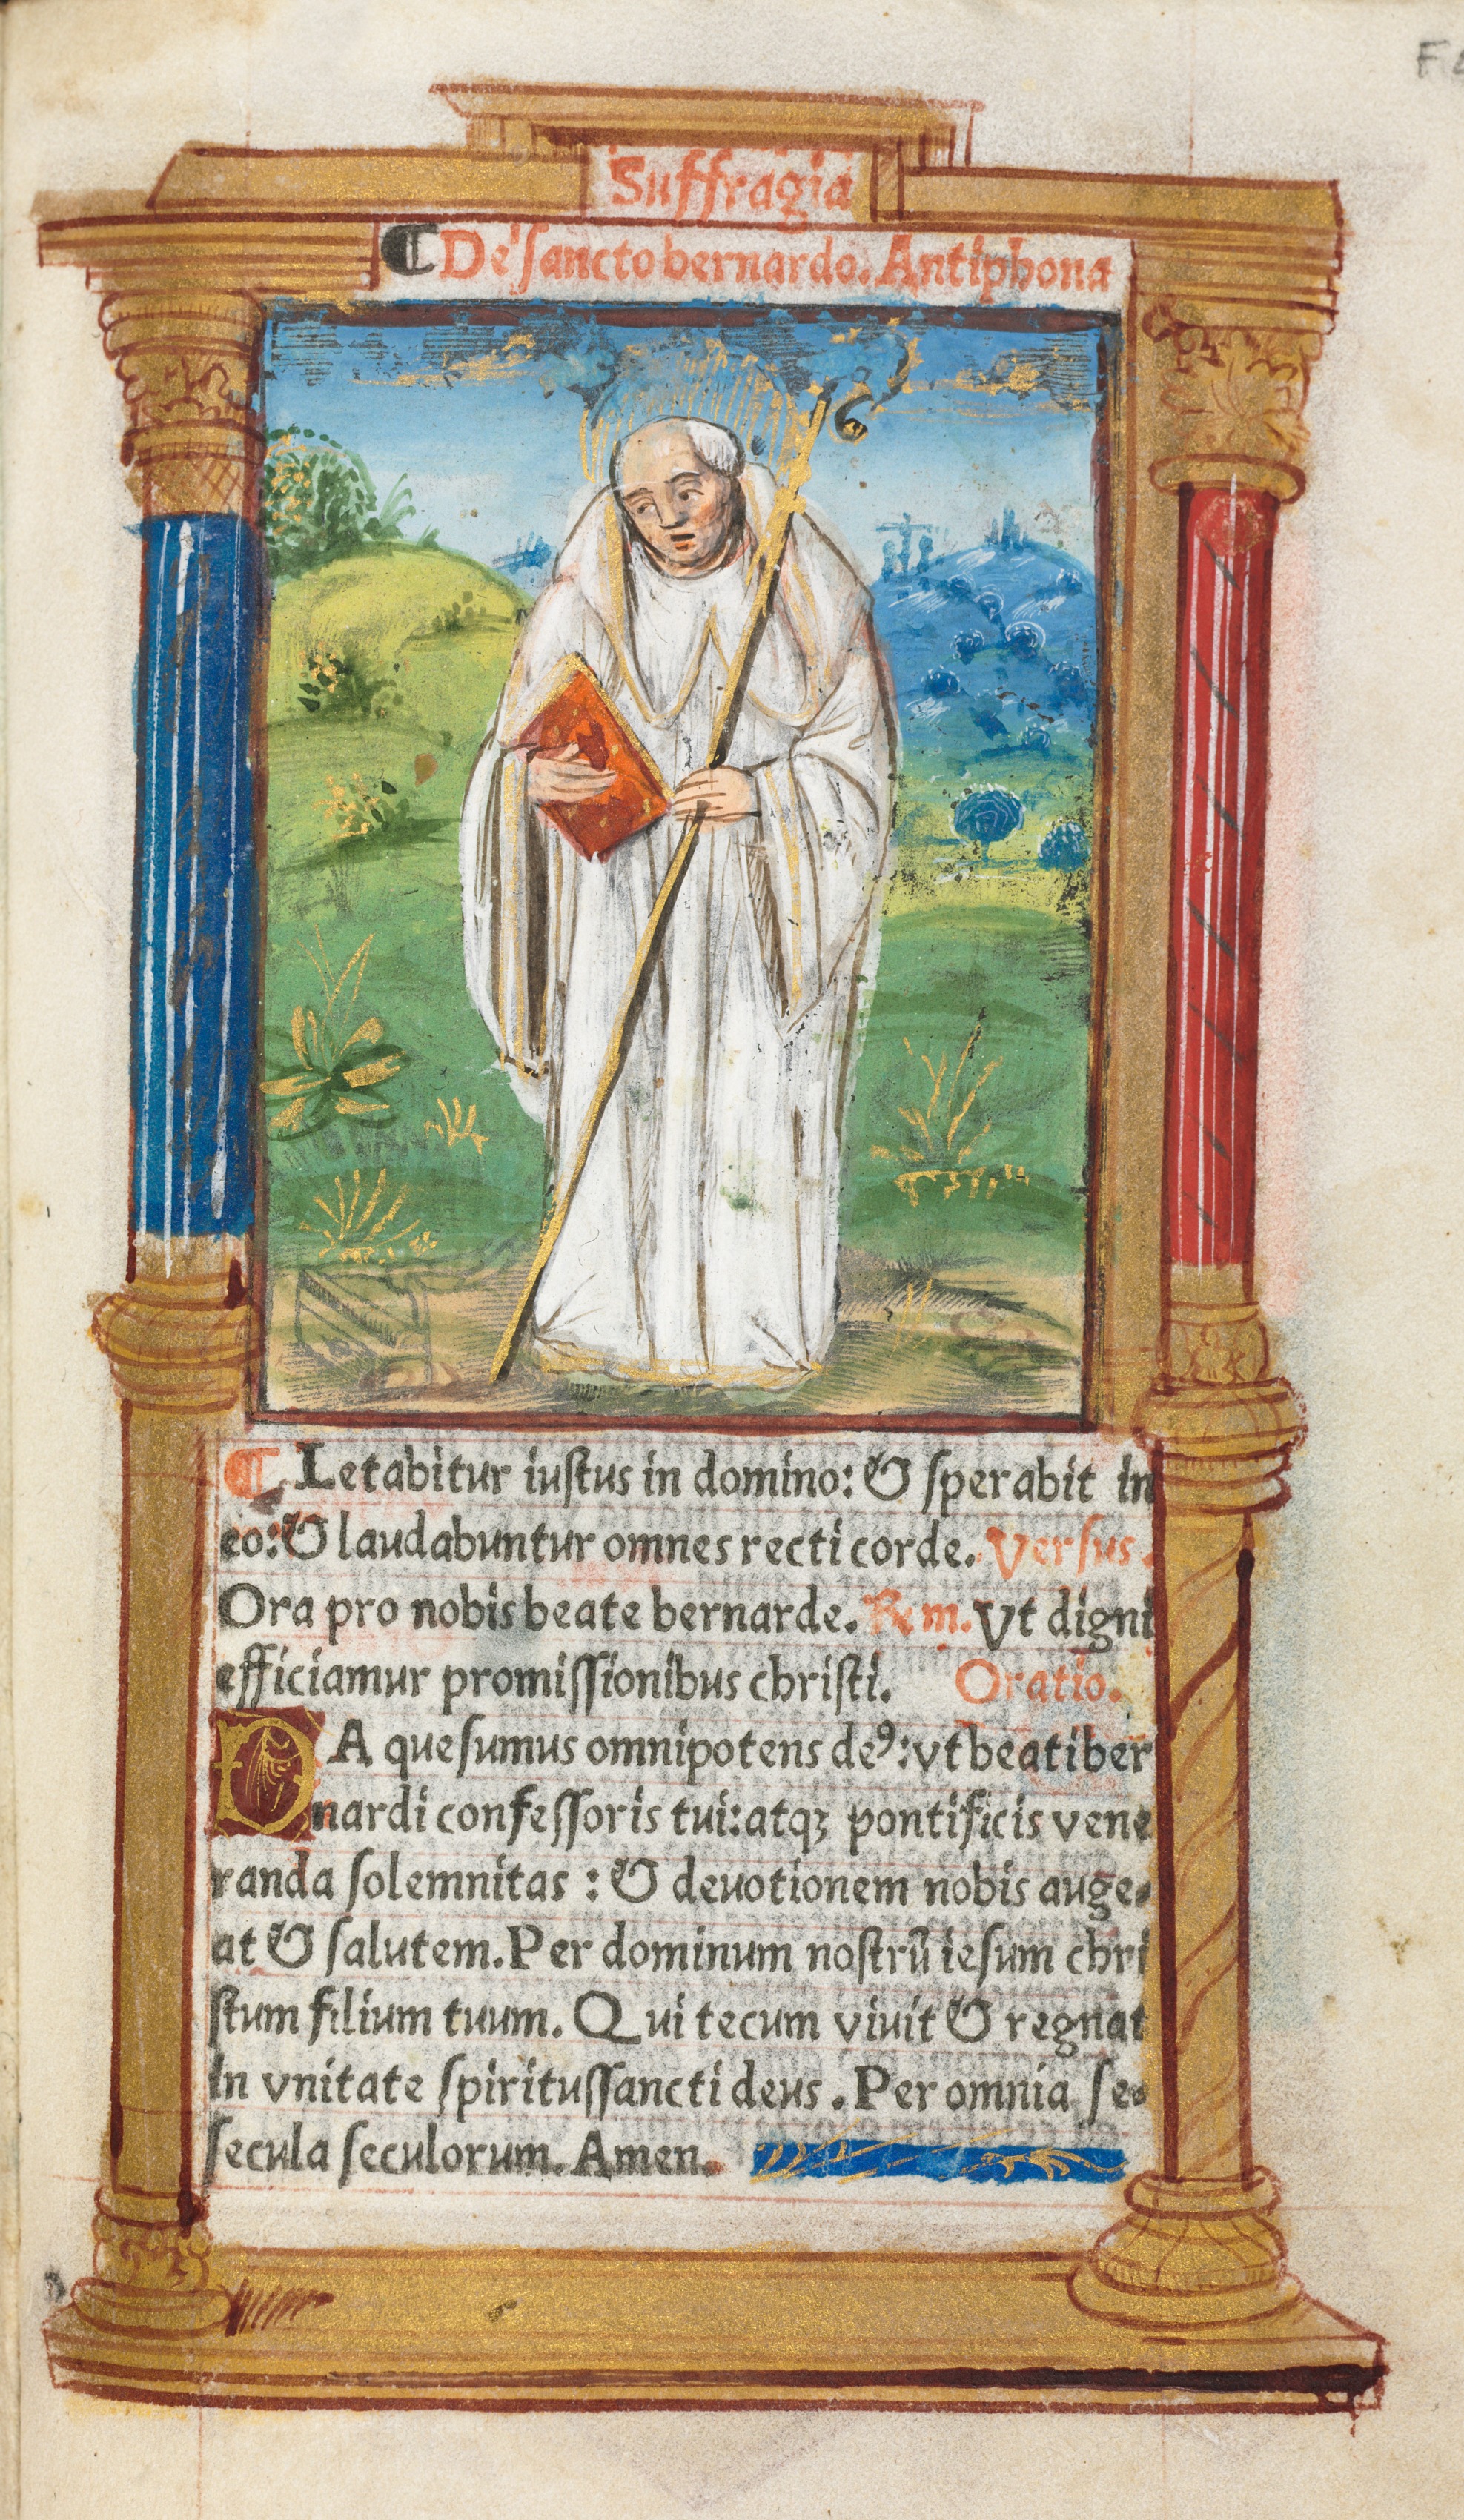 Suffragia
¶ De sancto bernardo. Antiphona
¶ Letabitur iuſtus in domino: & ſperabit in
eo: & laudabuntur omnes recti corde. Verſus.
Ora pro nobis beate bernarde. Rm. Vt digni
efficiamur promiſſionibus chriſti. Oratio.
DA queſumus omnipotens deꝰ: vt beati ber
nardi confeſſoris tui: atqꝫ pontificis vene
randa ſolemnitas : & deuotionem nobis auge⸗
at & ſalutem. Per dominum noſtrū ieſum chri
ſtum filium tuum. Qui tecum viuit & regnat
in vnitate ſpirituſſancti deus. Per omnia ſe⸗
ſecula ſeculorum. Amen.